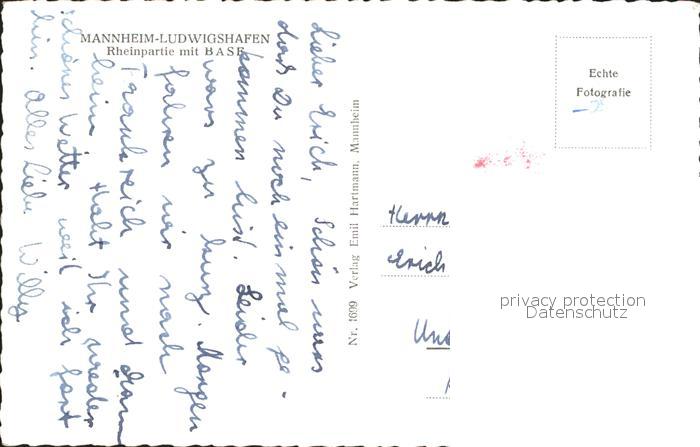 MANNHEIM-LUDWIGSHAFEN
Rheinpartie mit BASF
Lieber Erich, Schön wars
daß Du noch einmal ge-
kommen bist. Leider
wars zu kurz. Morgen
fahren wir nach
Frankreich und dann
heim. Habt Ihr wieder
schönes Wetter weil ich fort
bin. Alles Liebe Willy
Nr. 1699 Verlag Emil Hartmann, Mannheim
Echte
Fotografie
Herrn
Erich
privacy protection
Datenschutz